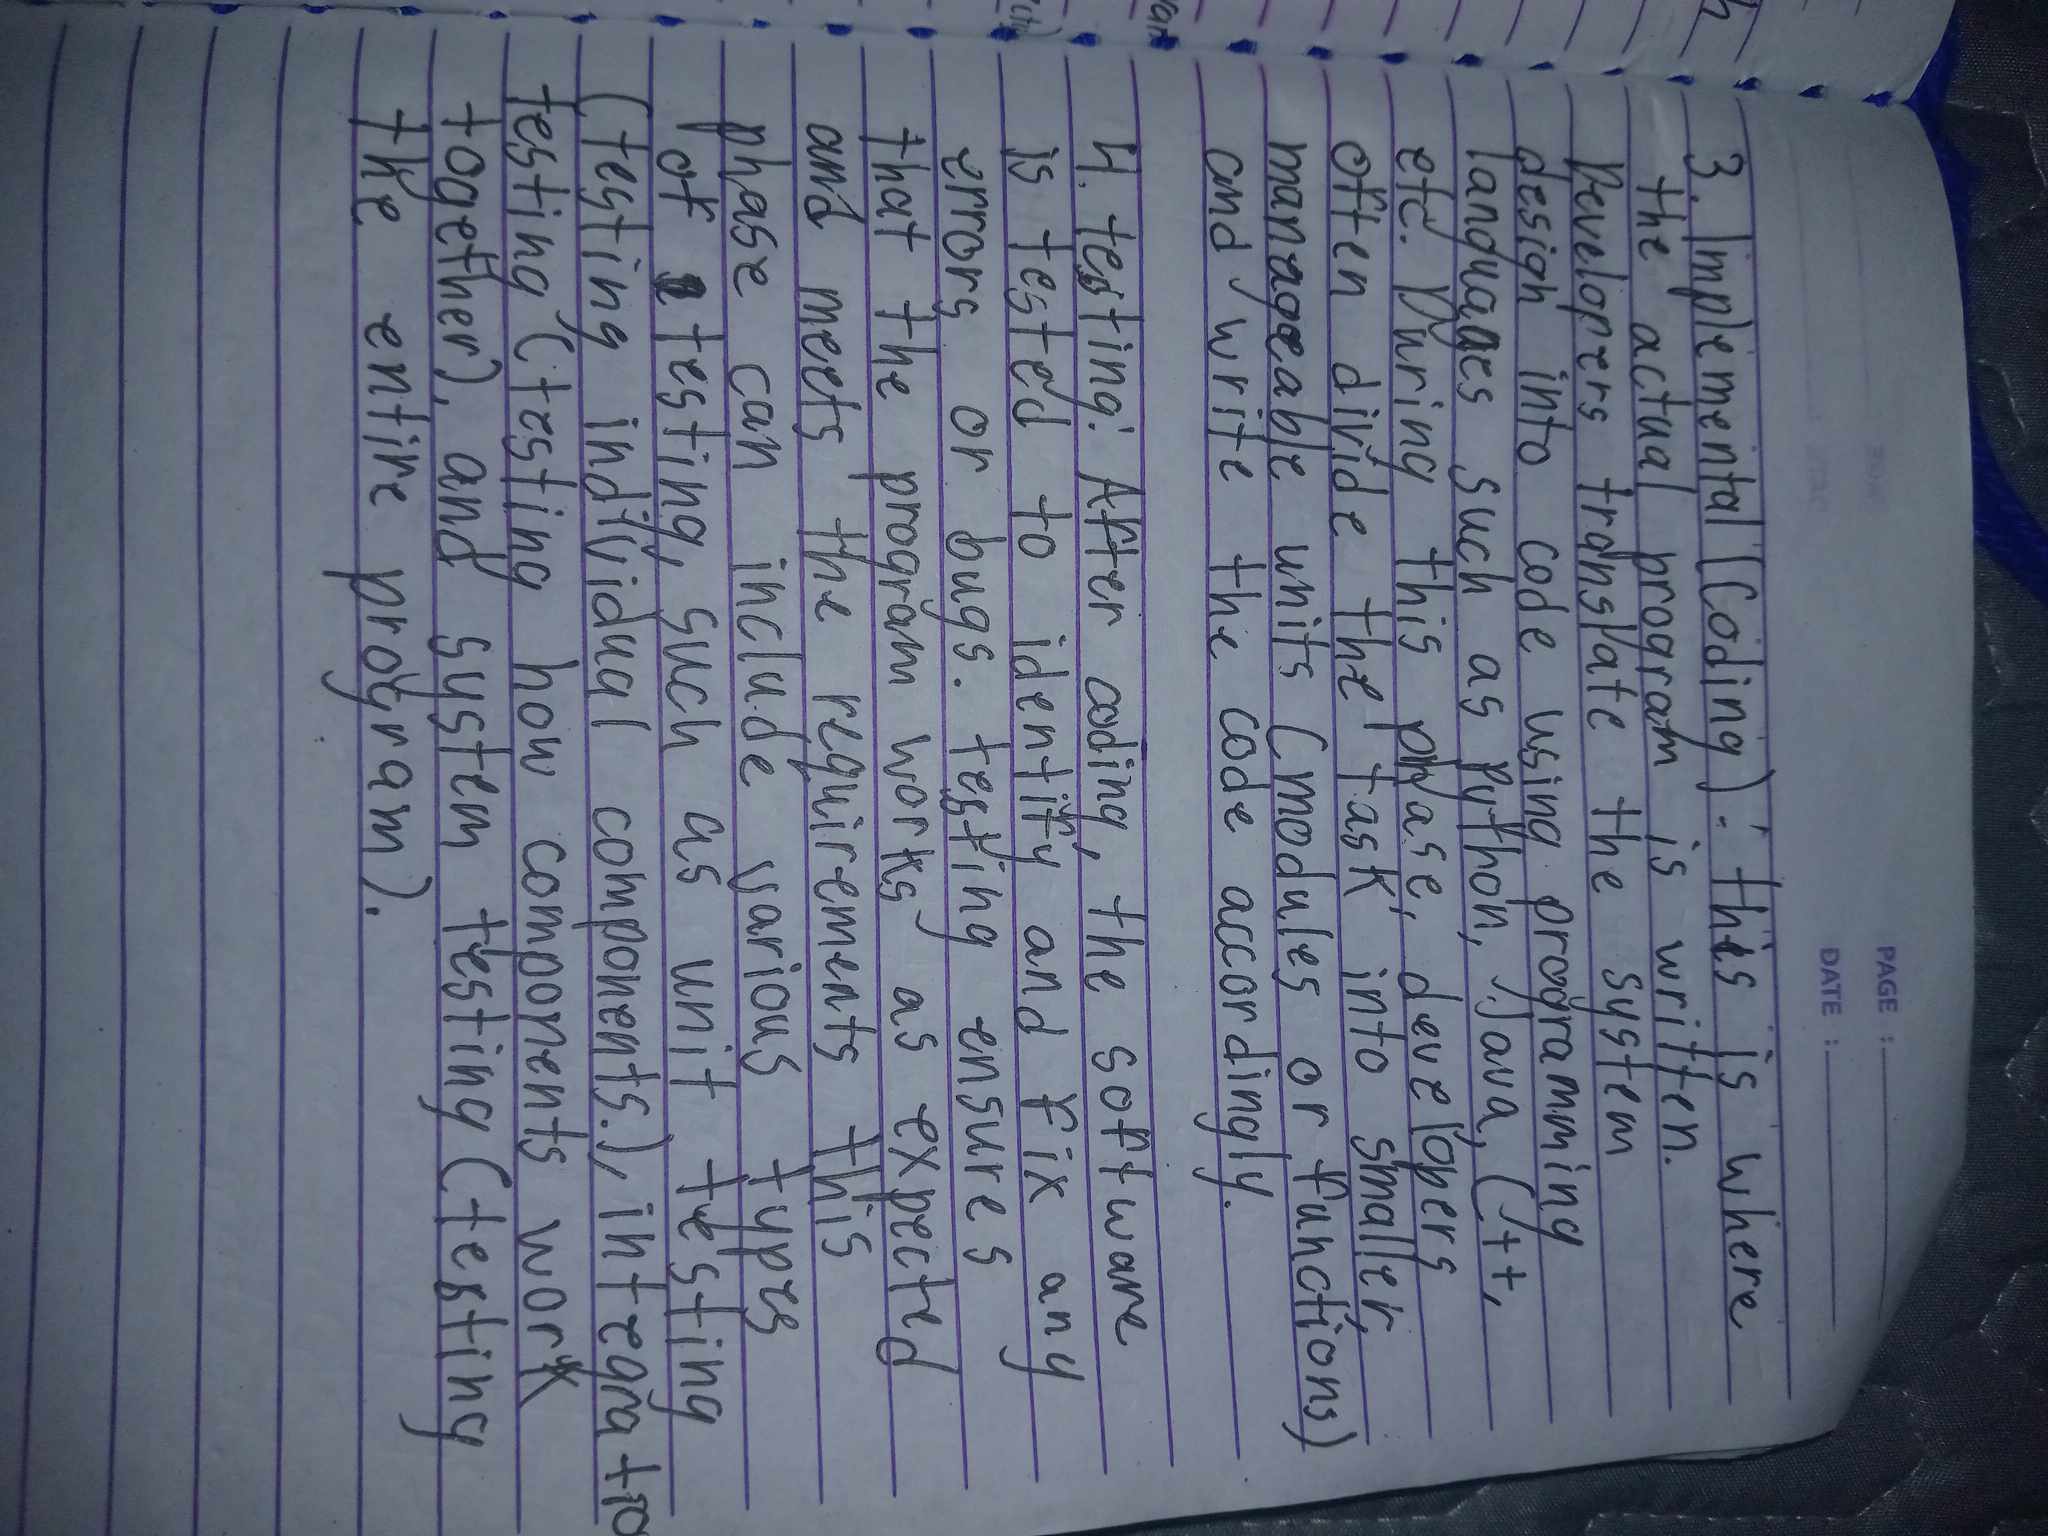 PAGE :
DATE :
3. Implemental (Coding) : this is where
the actual program is written.
Developers translate the system
design into code using programming
languages such as Python, Java, C++,
etc. During this phase, developers
often divide the task into smaller,
manageable units (modules or functions)
and write the code accordingly.
4. testing: After coding, the software
is tested to identify and fix any
errors or bugs. testing ensures
that the program works as expected
and meets the requirements this
phase can include various types
of testing, such as unit testing
(testing individual components.), integratio
testing (testing how components work
together), and system testing (testing
the entire program).